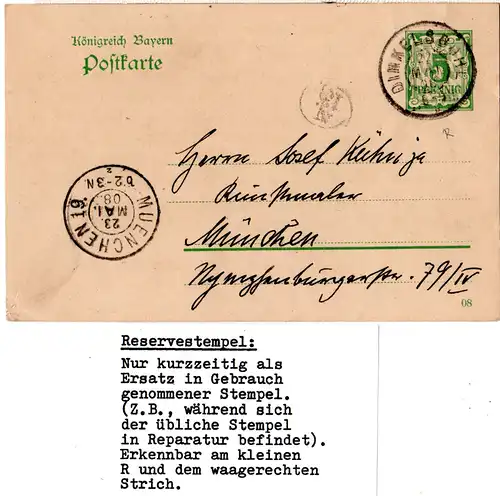 Königreich Bayern
Postkarte
DINKELSBÜHL
5
PFENNIG
R
Herrn Josef Kühn
Kunstmaler
München
Nymphenburgerstr. 79/IV
MUENCHEN 19.
23.
MAI.
08.
62-3N.
08
Reservestempel:
Nur kurzzeitig als
Ersatz in Gebrauch
genommener Stempel.
(Z.B., während sich
der übliche Stempel
in Reparatur befindet).
Erkennbar am kleinen
R und dem waagerechten
Strich.